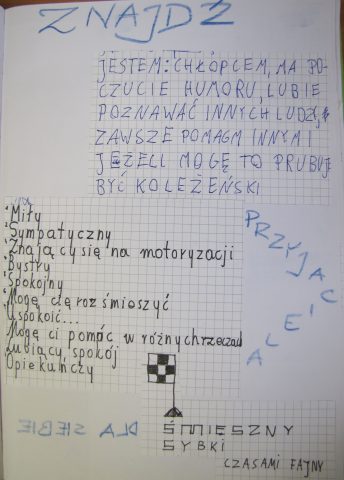 ZNAJDŹ
JESTEM: CHŁÓPCEM, MA PO-
CZUCIE HUMORU, LUBIE
POZNAWAĆ INNYCH LUDZI,
ZAWSZE POMAGM INNYM I
JEŻELI MOGĘ TO PRUBUJĘ
BYĆ KOLEŻEŃSKI
PRZYJACIELA
Miły
Sympatyczny
Znający się na motoryzacji
Bystry
Spokojny
Mogę cię rozśmieszyć
Uspokoić...
Mogę ci pomóc w różnych rzeczach
Lubiący spokój
Opiekuńczy
DLA SIEBIE
ŚMIESZNY
SYBKI
CZASAMI FAJNY